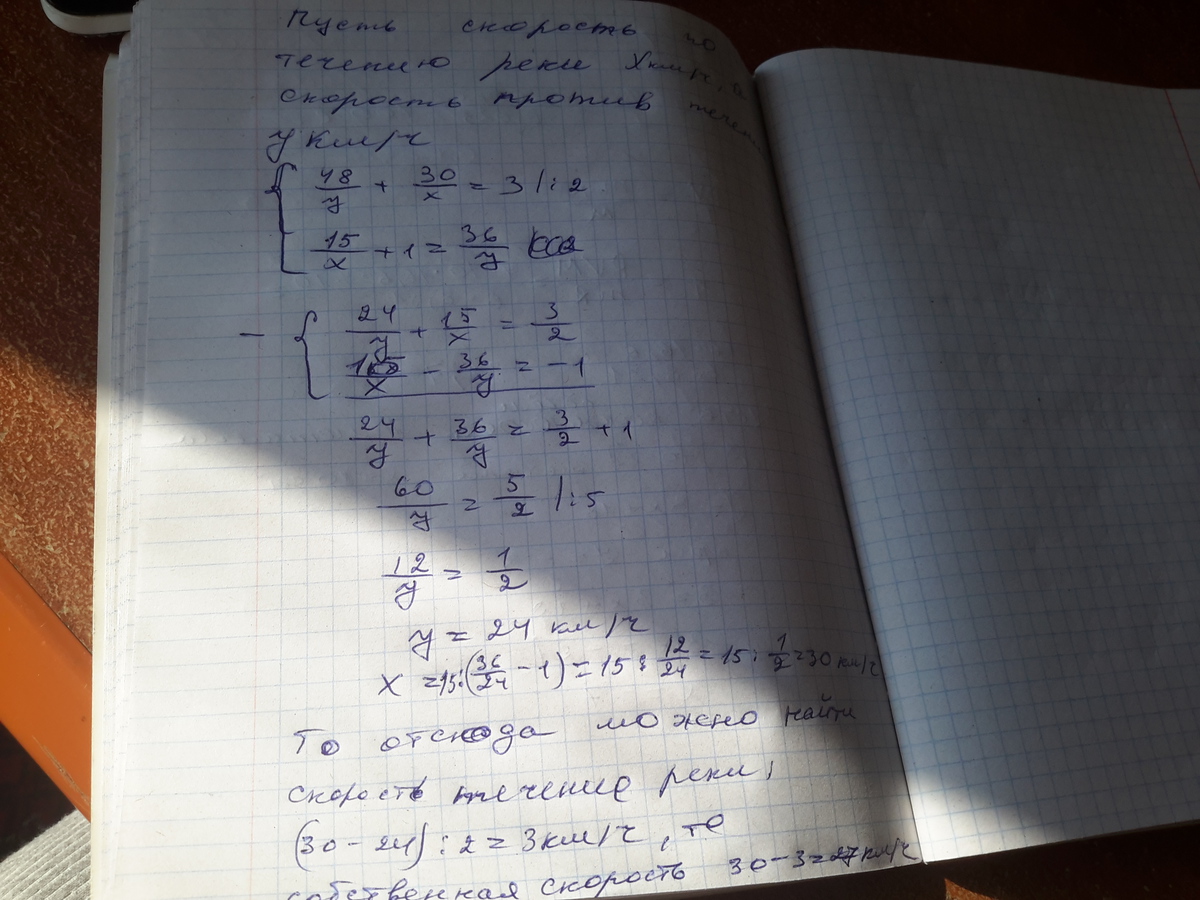 Пусть скорость по
течению реки x км/ч, а
скорость против течения
y км/ч
48/y + 30/x = 3 |:2
15/x + 1 = 36/y
24/y + 15/x = 3/2
− 15/x − 36/y = −1
24/y + 36/y = 3/2 + 1
60/y = 5/2 |:5
12/y = 1/2
y = 24 км/ч
x = 15:(36/24 − 1) = 15 : 12/24 = 15 : 1/2 = 30 км/ч
То отсюда можно найти
скорость течение реки,
(30 − 24) : 2 = 3 км/ч, то
собственная скорость 30 − 3 = 27 км/ч